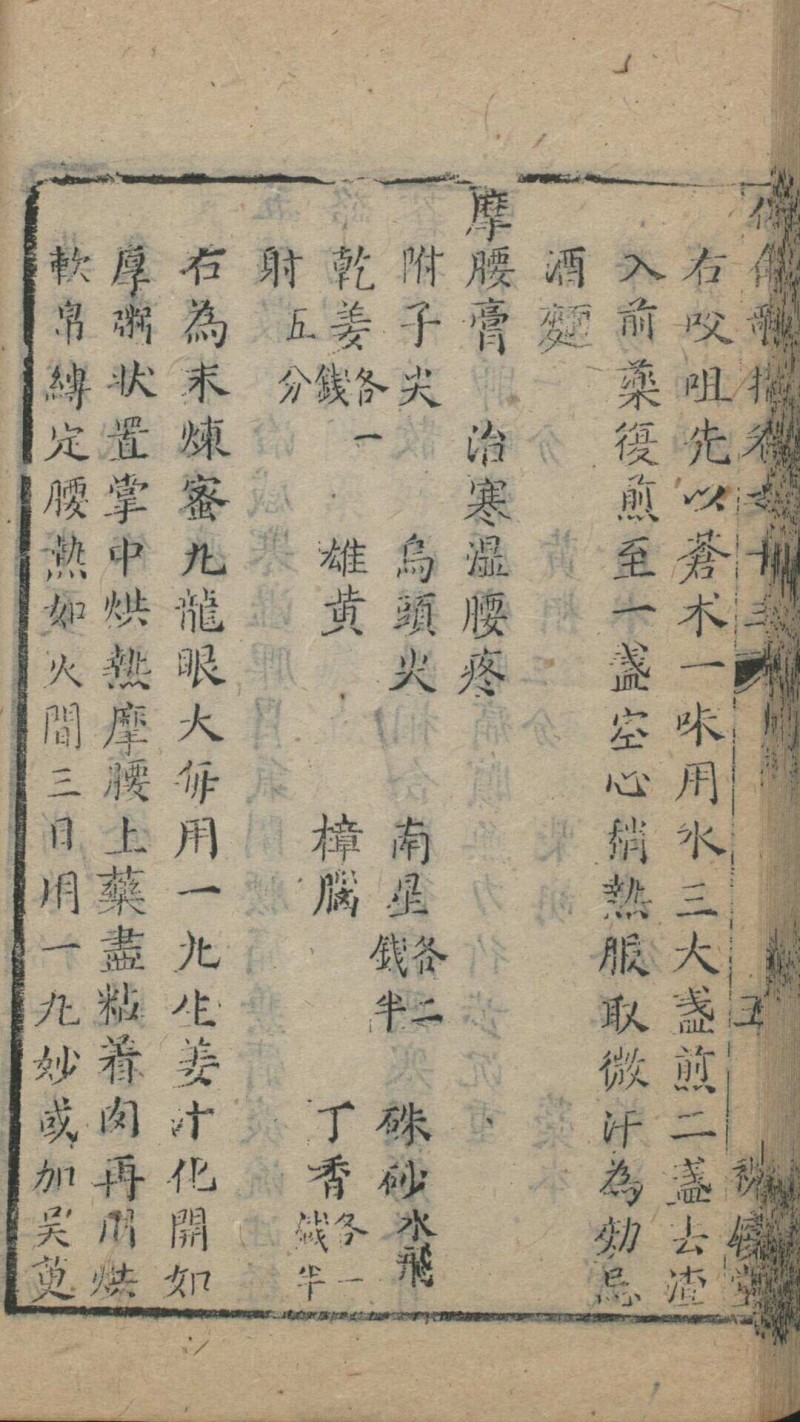 右咬咀先以蒼术一味用水三大盞煎二盞去渣
入前藥復煎至一盞空心稍熱服取微汗為効忌
酒麵
摩腰膏 治寒濕腰疼
附子尖 烏頭尖 南星各二錢半 硃砂水飛
乾姜各一錢 雄黄 樟腦 丁香各一錢半
射五分
右為末煉蜜丸龍眼大每用一丸生姜汁化開如
厚粥狀置掌中烘熱摩腰上藥盡粘着肉再用烘
軟帛縛定腰熱如火間三日用一丸妙或加吴茰